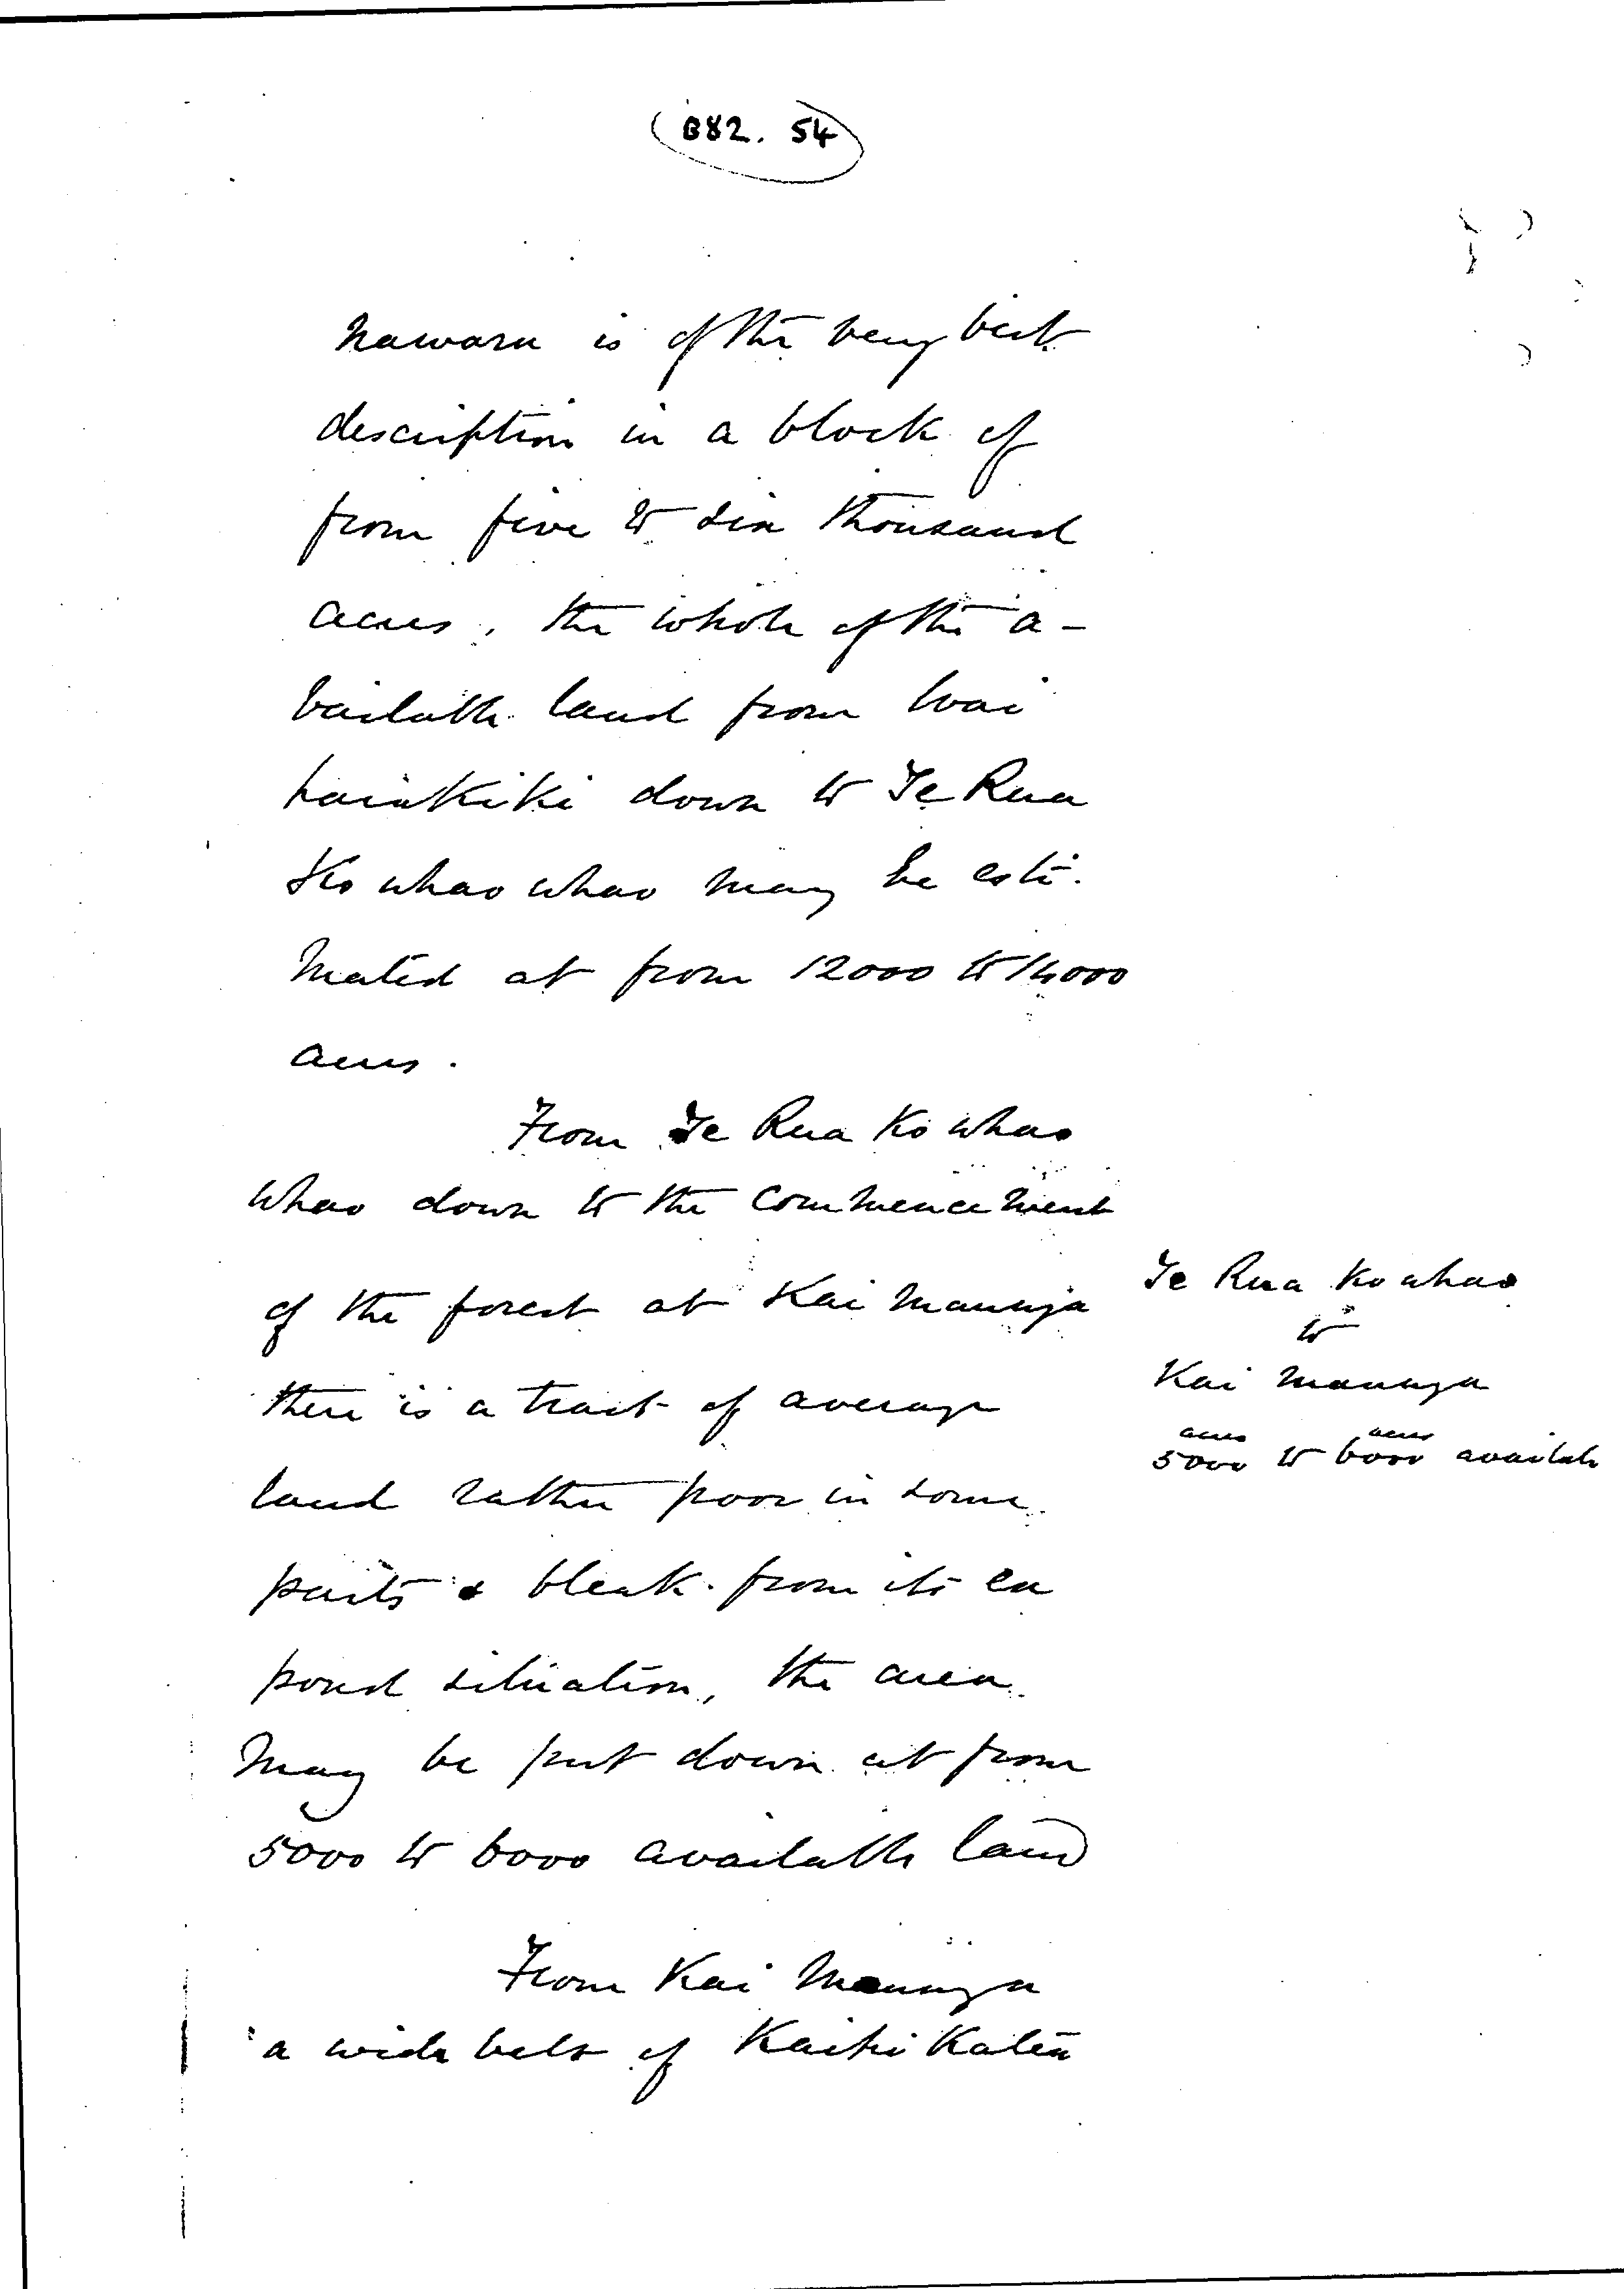 B82. 54
nawaru is of the very best
description in a block of
from five to six thousand
acres, the whole of the a-
vailable land from Wai
harakiki down to Te Rua
Ko whao whao may be esti-
mated at from 12000 to 14000
acres.
From Te Rua Ko whao
whao down to the commencement
of the forest at Kai Manuga
there is a tract of average
land rather poor in some
parts & bleak from its ex
posed situation, the area
may be put down at from
5000 to 6000 available land
From Kai Manuga
a wide belt of Kaihi Katea
Te Rua Ko whao
to
Kai Manuga
acres acres
5000 to 6000 availabl